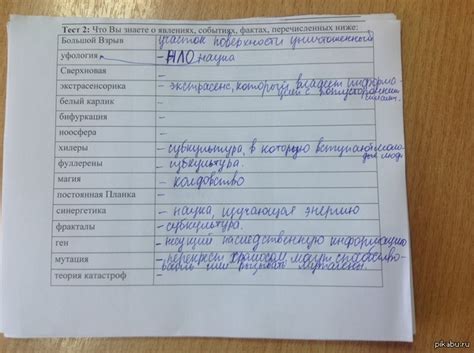 Тест 2: Что Вы знаете о явлениях, событиях, фактах, перечисленных ниже:
Большой Взрыв участок поверхности уничтоженный
уфология - НЛО наука
Сверхновая -
экстрасенсорика - экстрасенс, который владеет информацией с потусторонними
белый карлик -
бифуркация -
ноосфера -
хилеры - субкультура, в которую вступают молодые люди
фуллерены - субкультура.
магия - колдовство
постоянная Планка -
синергетика - наука, изучающая энергию
фракталы - субкультура.
ген - несущий наследственную информацию
мутация - перекрест хромосом могут способствовать или вызывать
теория катастроф -
pikabu.ru